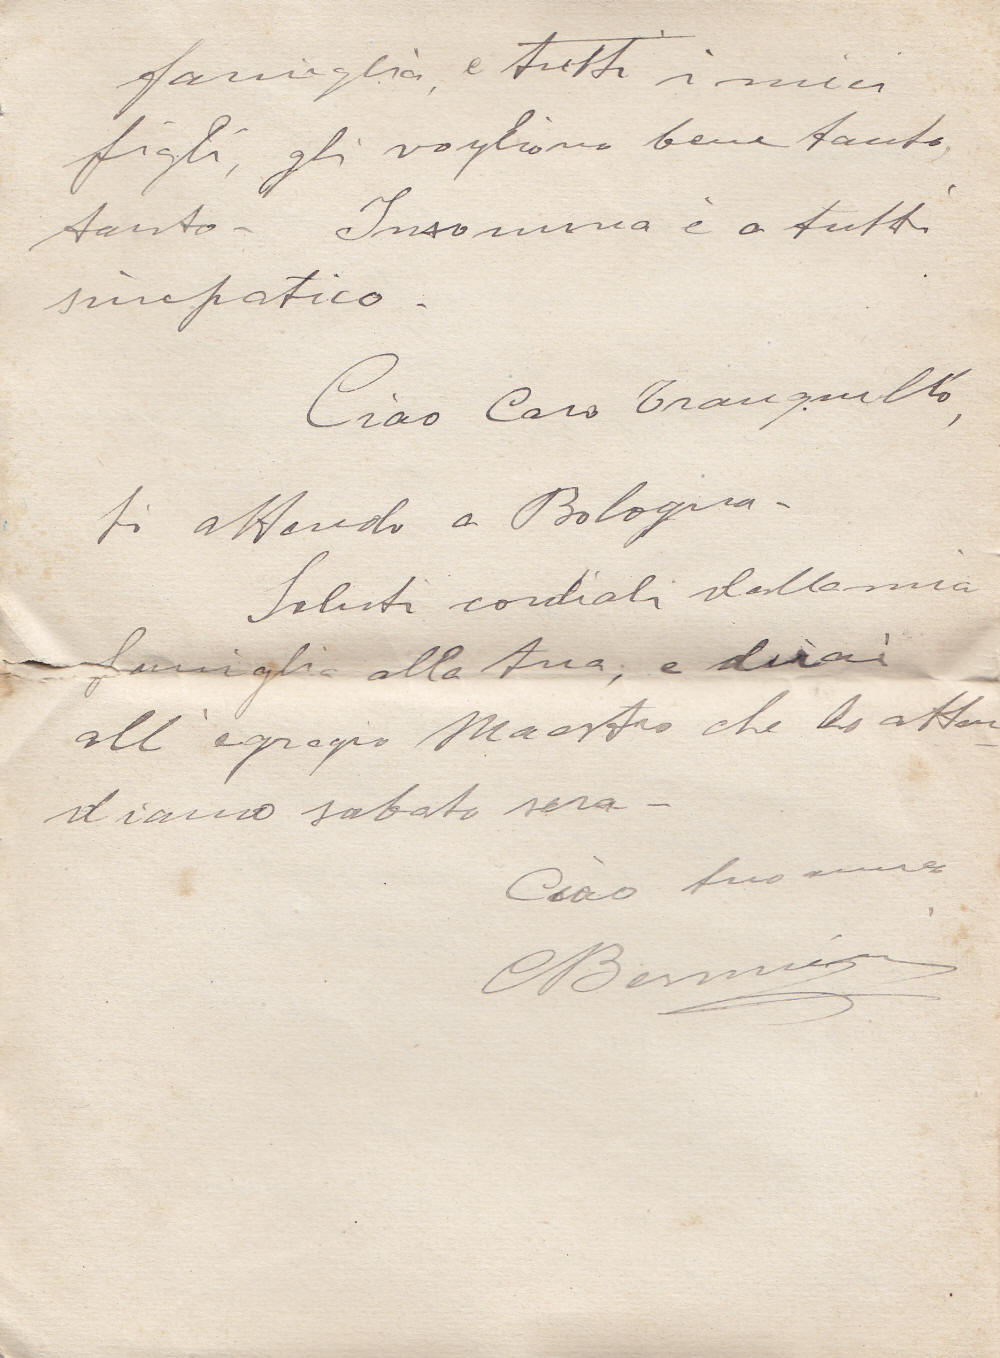 famiglia, e tutti i miei
figli, gli vogliono bene tanto,
tanto - Insomma è a tutti
simpatico -
Ciao Caro Tranquillo,
ti attendo a Bologna -
Saluti cordiali dalla mia
famiglia alla tua, e dirai
all'egregio Maestro che lo atten
diamo sabato sera -
Ciao tuo